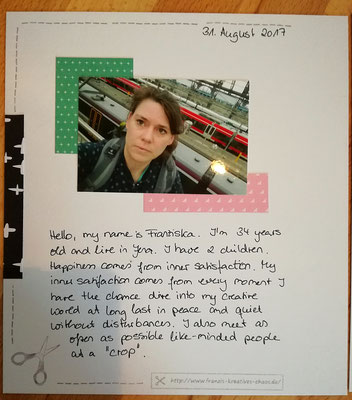 31. August 2017
Hello, my name is Franziska. I'm 34 years
old and live in Jena. I have 2 children.
Happiness comes from inner satisfaction. My
inner satisfaction comes from every moment I
have the chance dive into my creative
world at long last in peace and quiet
without disturbances. I also meet as
often as possible like-minded people
at a "crop".